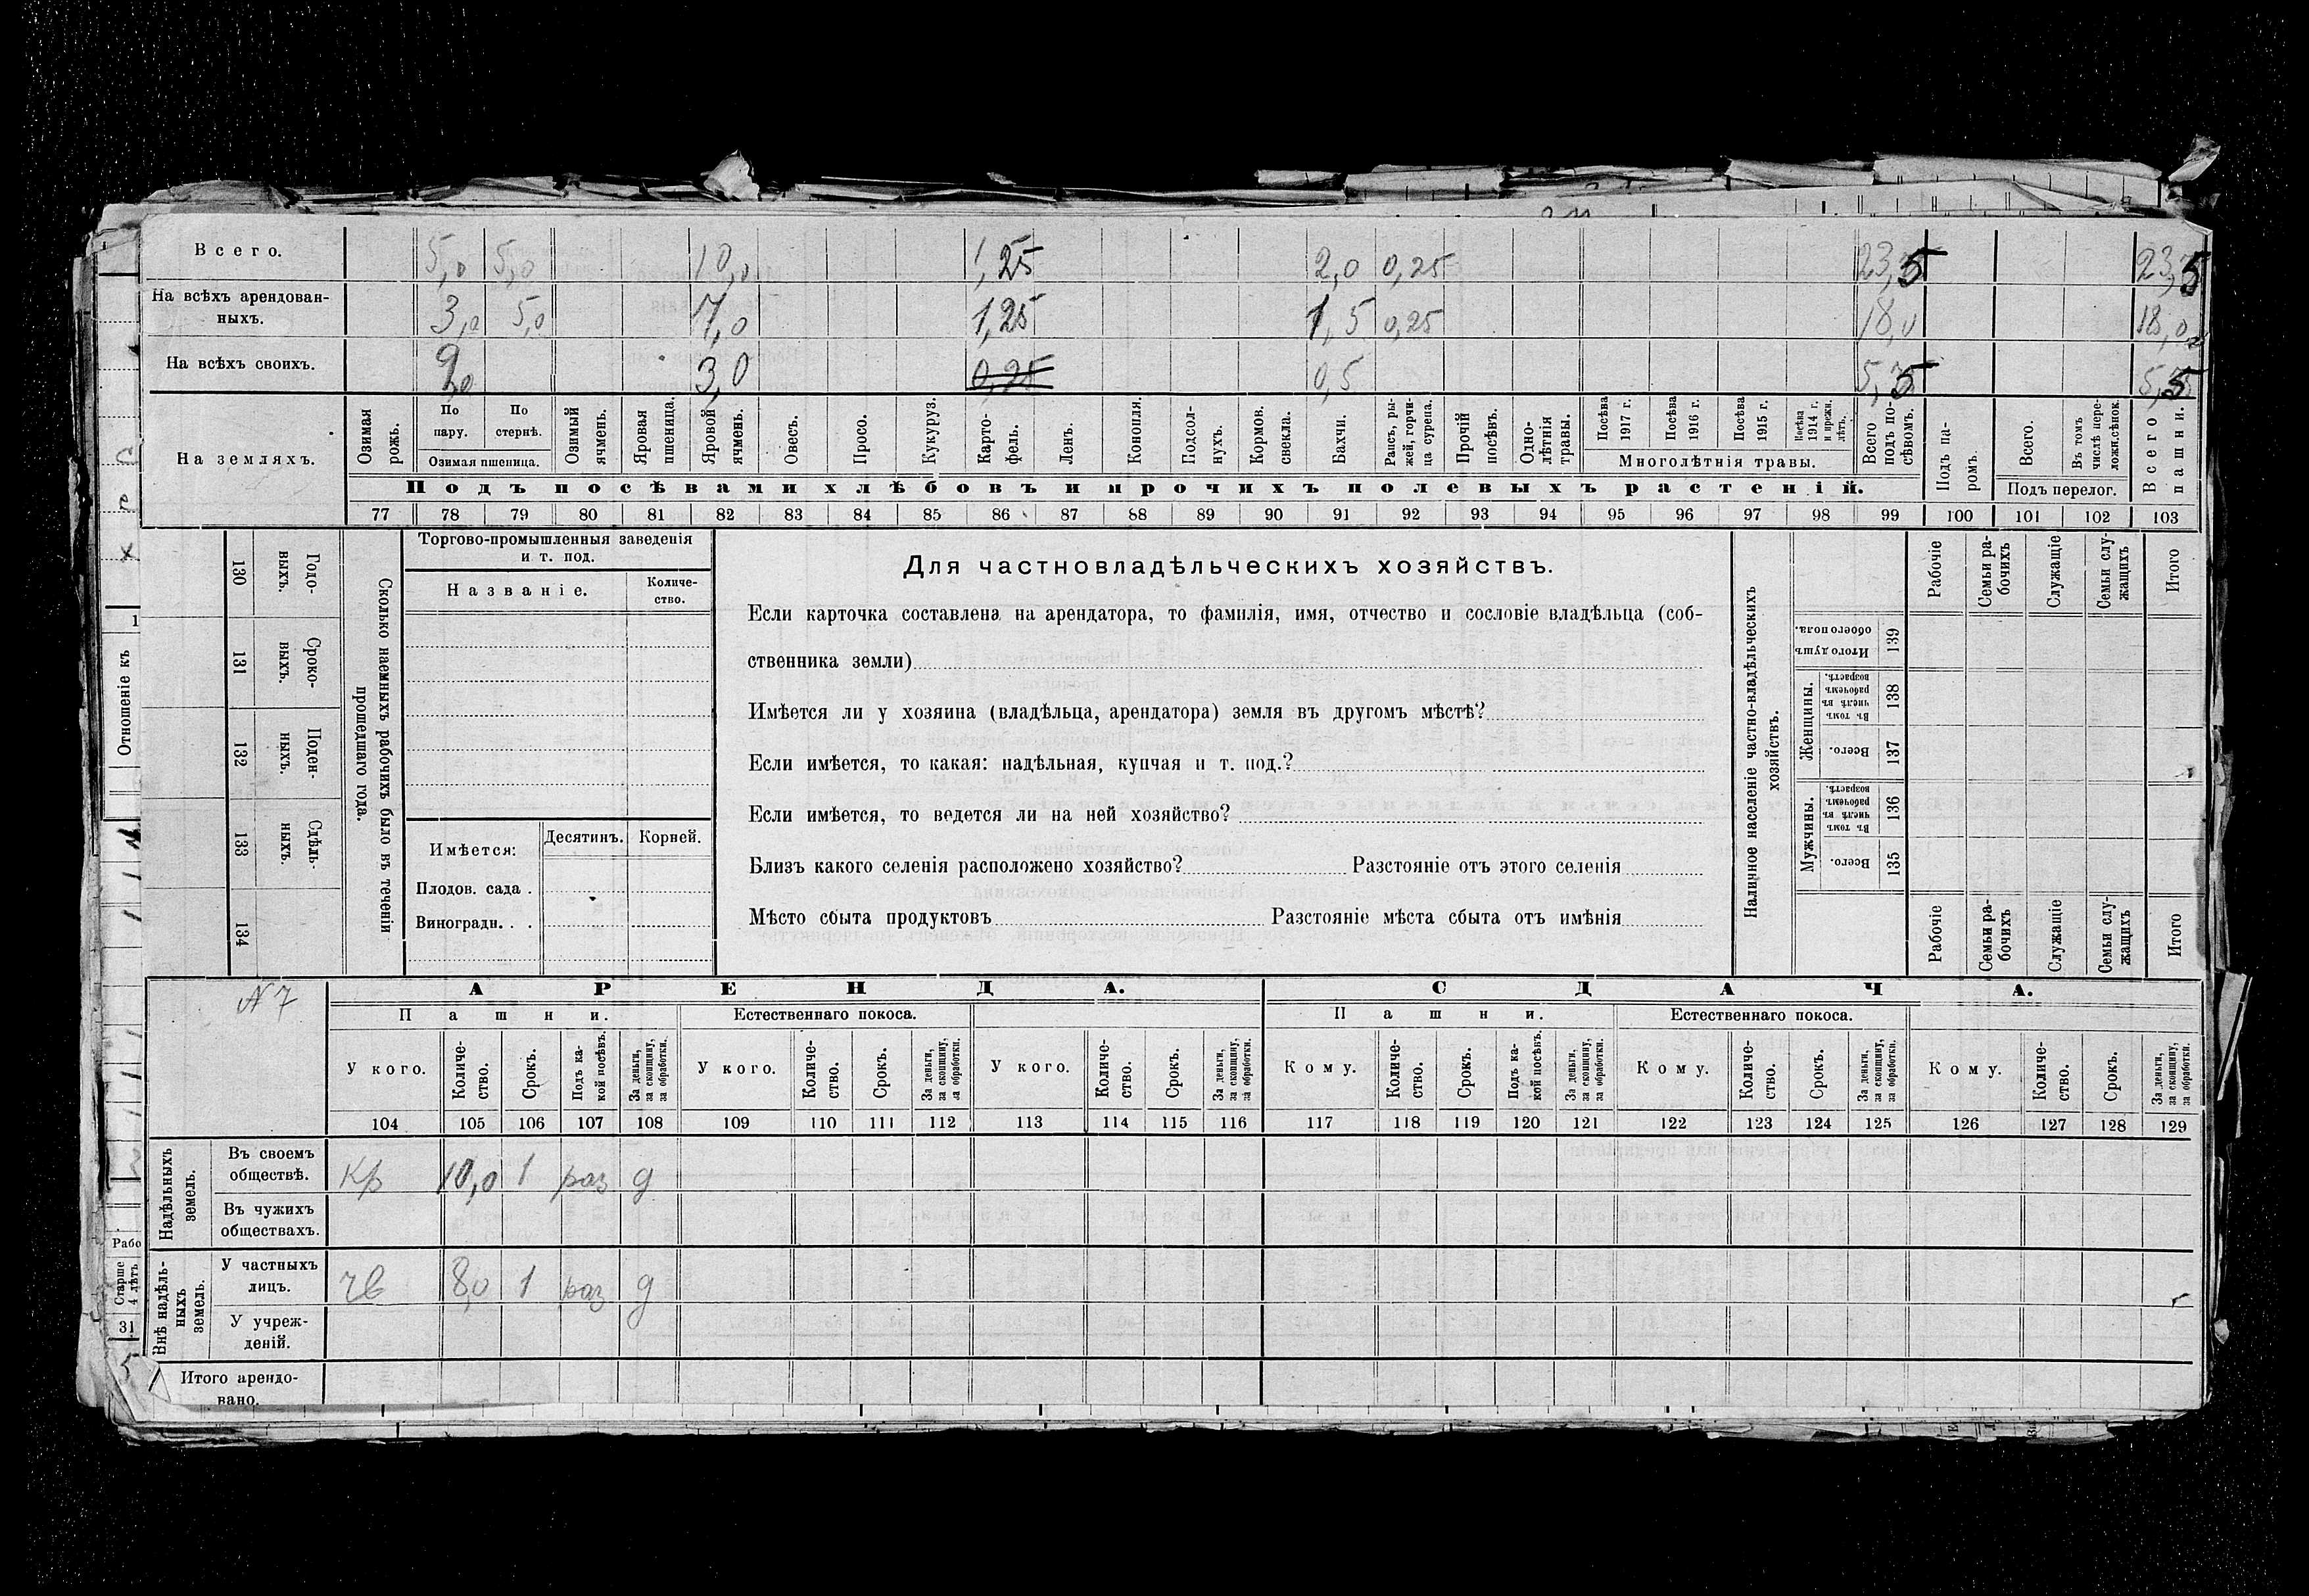 Всего. 5,0 5,0 10,0 1,25 2,0 0,25 23,5 23,5
На всѣхъ арендован-
ныхъ. 3,0 5,0 7,0 1,25 1,5 0,25 18,0 18,0
На всѣхъ своихъ. 2,0 3,0 0,25 0,5 5,5 5,5
На земляхъ.
Озимая рожь.
По пару.
По стернѣ.
Озимая пшеница.
Озимый ячмень.
Яровая пшеница.
Яровой ячмень.
Овесъ.
Просо.
Кукуруз.
Карто-
фель.
Ленъ.
Конопля.
Подсол-
нухъ.
Кормов. свекла.
Бахчи.
Рапсъ, ры-
жей, горчи-
ца сурепа.
Прочій посѣвъ.
Одно-
лѣтнія травы.
Посѣва 1917 г.
Посѣва 1916 г.
Посѣва 1915 г.
Посѣва 1914 г. и прежн. лѣтъ.
Многолѣтнія травы.
Всего подъ по-
сѣвомъ.
Подъ па-
ромъ.
Всего.
Въ томъ числѣ пере-
ложн.сѣнок.
Подъ перелог.
Всего пашни.
Подъ посѣвами хлѣбовъ и прочихъ полевыхъ растеній.
77 78 79 80 81 82 83 84 85 86 87 88 89 90 91 92 93 94 95 96 97 98 99 100 101 102 103
Отношеніе къ
130 Годо-
ныхъ.
131 Сроко-
выхъ.
132 Поден-
ныхъ.
133 Сдѣль-
ныхъ.
134
Сколько наемныхъ рабочихъ было въ теченіи
прошедшаго года.
Торгово-промышленныя заведенія
и т. под.
Названіе.
Количе-
ство.
Имѣется: Десятинъ. Корней.
Плодов. сада .
Виноградн. . .
Для частновладѣльческихъ хозяйствъ.
Если карточка составлена на арендатора, то фамилія, имя, отчество и сословіе владѣльца (соб-
ственника земли)
Имѣется ли у хозяина (владѣльца, арендатора) земля въ другомъ мѣстѣ?
Если имѣется, то какая: надѣльная, купчая и т. под.?
Если имѣется, то ведется ли на ней хозяйство?
Близъ какого селенія расположено хозяйство? Разстояніе отъ этого селенія
Мѣсто сбыта продуктовъ Разстояніе мѣста сбыта отъ имѣнія
Наличное населеніе частно-владѣльческихъ
хозяйствъ.
Итого душъ обоего пола. 139
Женщины.
Въ томъ числѣ въ рабочемъ возрастѣ. 138
Всего. 137
Мужчины.
Въ томъ числѣ въ рабочемъ возрастѣ. 136
Всего. 135
Рабочіе
Семьи ра-
бочихъ
Служащіе
Семьи слу-
жащихъ
Итого
Рабочіе
Семьи ра-
бочихъ
Служащіе
Семьи слу-
жащихъ
Итого
N 7
АРЕНДА. СДАЧА.
Пашни. Естественнаго покоса. Пашни. Естественнаго покоса.
У кого.
Количе-
ство.
Срокъ.
Подъ ка-
кой посѣвъ.
За деньги,
за скопщину,
за обработки.
У кого.
Количе-
ство.
Срокъ.
За деньги,
за скопщину,
за обработки.
У кого.
Количе-
ство.
Срокъ.
За деньги,
за скопщину,
за обработки.
Кому.
Количе-
ство.
Срокъ.
Подъ ка-
кой посѣвъ.
За деньги,
за скопщину,
за обработки.
Кому.
Количе-
ство.
Срокъ.
За деньги,
за скопщину,
за обработки.
Кому.
Количе-
ство.
Срокъ.
За деньги,
за скопщину,
за обработки.
104 105 106 107 108 109 110 111 112 113 114 115 116 117 118 119 120 121 122 123 124 125 126 127 128 129
Надѣльныхъ
земель.
Въ своемъ
обществѣ. кр 10,0 1 раз д
Въ чужихъ
обществахъ.
Внѣ надѣль-
ныхъ
земель.
У частныхъ
лицъ. чв 8,0 1 раз д
У учреж-
деній.
Итого арендо-
вано.
Рабо
Старше
4 лѣтъ
31